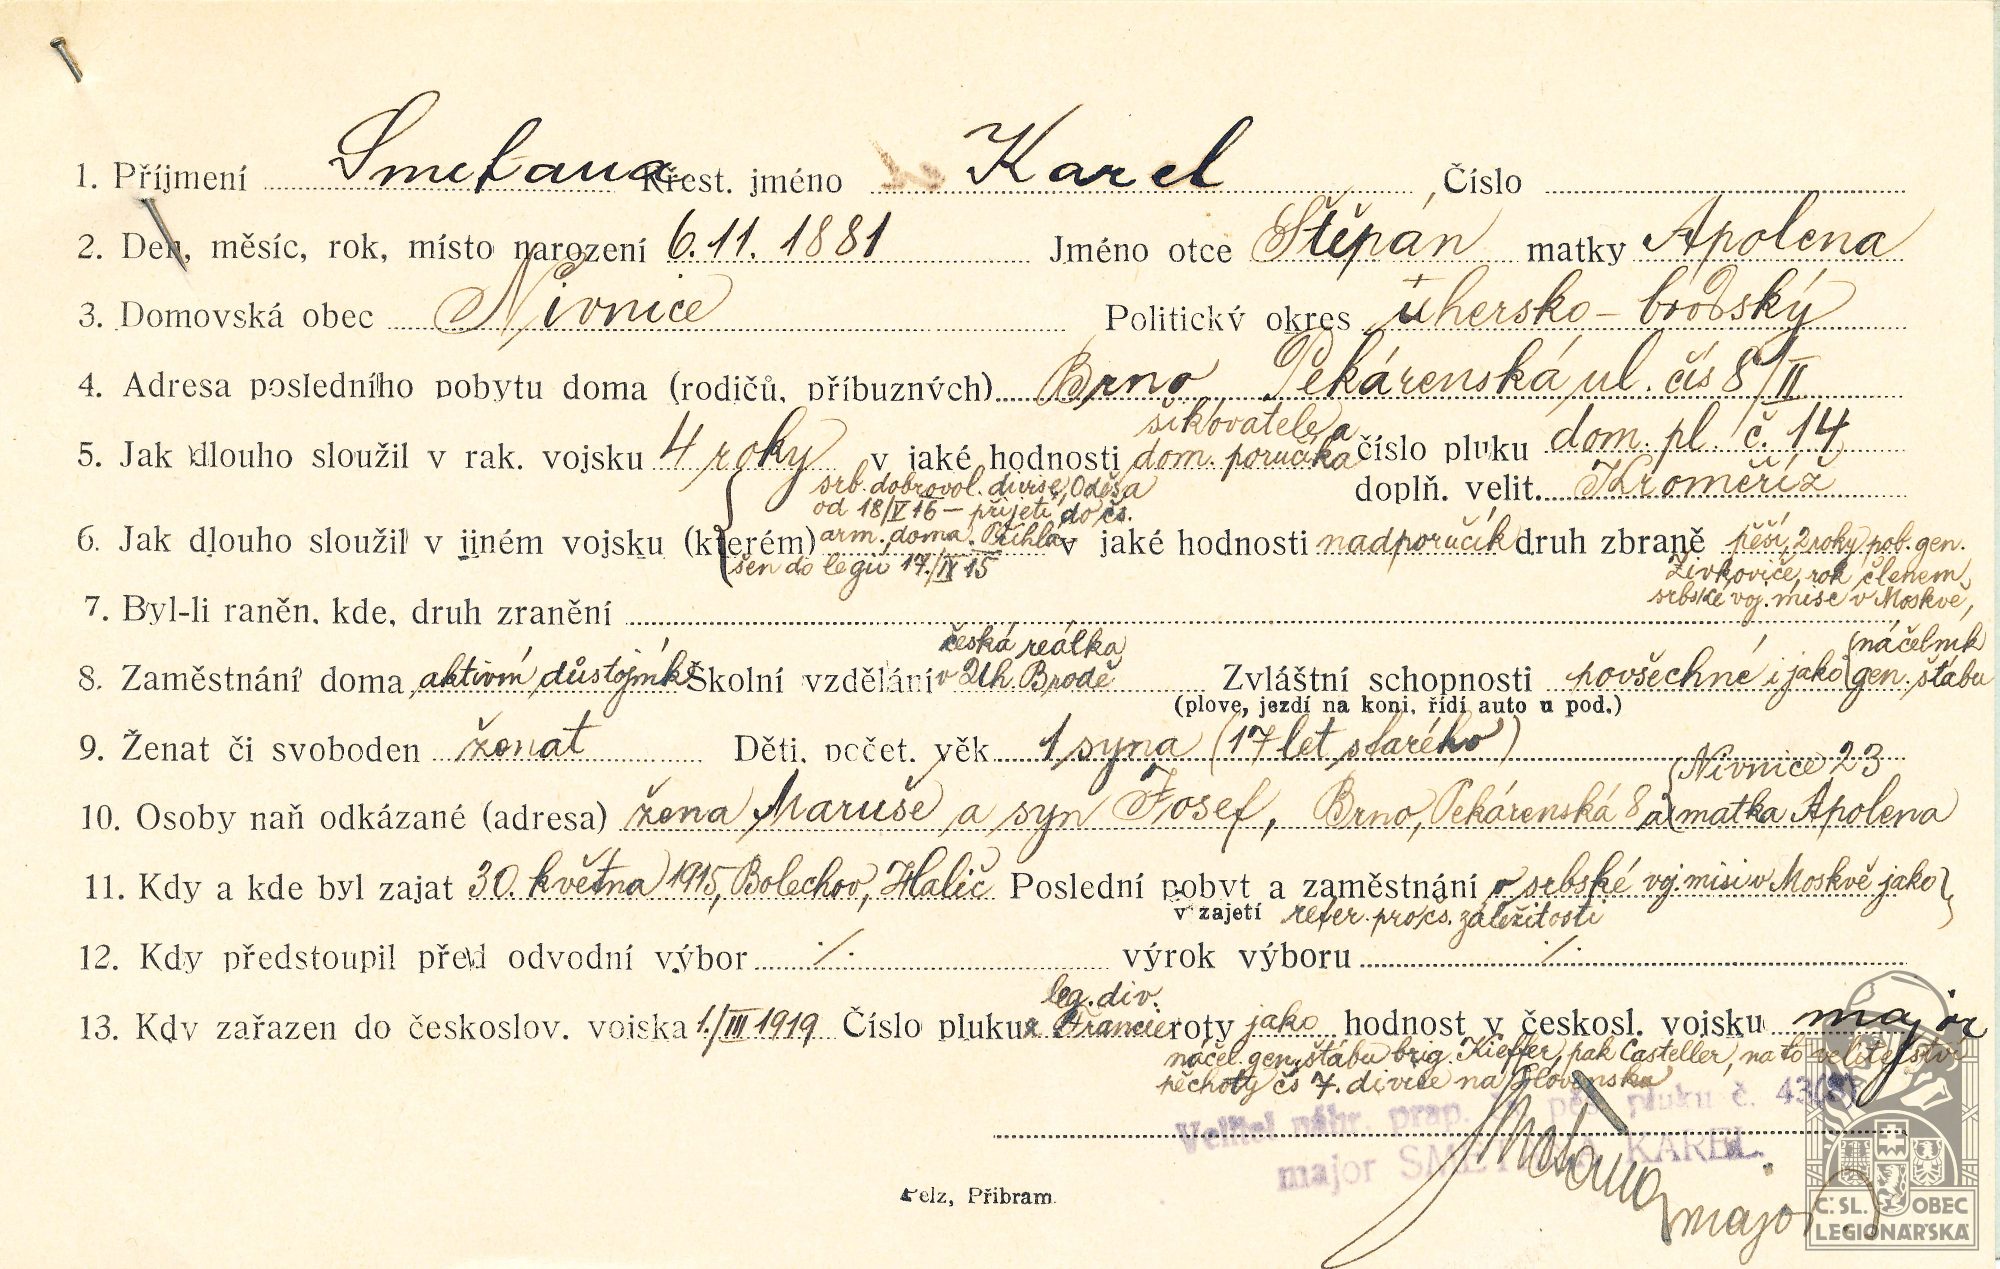 1. Příjmení Smetana Křest. jméno Karel, Číslo
2. Den, měsíc, rok, místo narození 6. 11. 1881 Jméno otce Štěpán matky Apolena
3. Domovská obec Nivnice Politický okres uhersko-brodský
4. Adresa posledního pobytu doma (rodičů, příbuzných) Brno Pekárenská ul. čís 8/II
5. Jak dlouho sloužil v rak. vojsku 4 roky v jaké hodnosti šikovatele a dom. poručíka číslo pluku dom. pl. č. 14
doplň. velit. Kroměříž
6. Jak dlouho sloužil v jiném vojsku (kterém) srb. dobrovol. divise, Oděsa
od 18/V 16 – přijetí do čs.
arm. doma. Přihlá-
šen do legií 17./IV 15
v jaké hodnosti nadporučík druh zbraně pěší, 2 roky pob. gen.
Živkoviče, rok členem
srbské voj. mise v Moskvě,
7. Byl-li raněn, kde, druh zranění
8. Zaměstnání doma aktivní důstojník Školní vzdělání česká reálka v Uh. Brodě Zvláštní schopnosti povšechné i jako náčelník gen. štábu
(plove, jezdí na koni, řídí auto u pod.)
9. Ženat či svoboden ženat Děti, počet, věk 1 syna (17 let starého)
10. Osoby naň odkázané (adresa) žena Maruše a syn Josef, Brno, Pekárenská 8 a matka Apolena Nivnice 23
11. Kdy a kde byl zajat 30. května 1915, Bolechov, Halič Poslední pobyt a zaměstnání v srbské voj. misi v Moskvě jako
v zajetí refer. pro čs. záležitosti
12. Kdy předstoupil před odvodní výbor ·/· výrok výboru ·/·
13. Kdy zařazen do českoslov. vojska 1./III 1919 Číslo pluku leg. div. z Francie roty jako hodnost v českosl. vojsku major
náčel. gen. štábu brig. Kieffer, pak Casteller, na to velitelství
pěchoty čs 7. divise na Slovensku
Velitel náhr. prap. pěš. pluku č. 43
major SMETANA KAREL.
Smetana major
Pelz, Příbram.
Č. SL. OBEC
LEGIONÁŘSKÁ